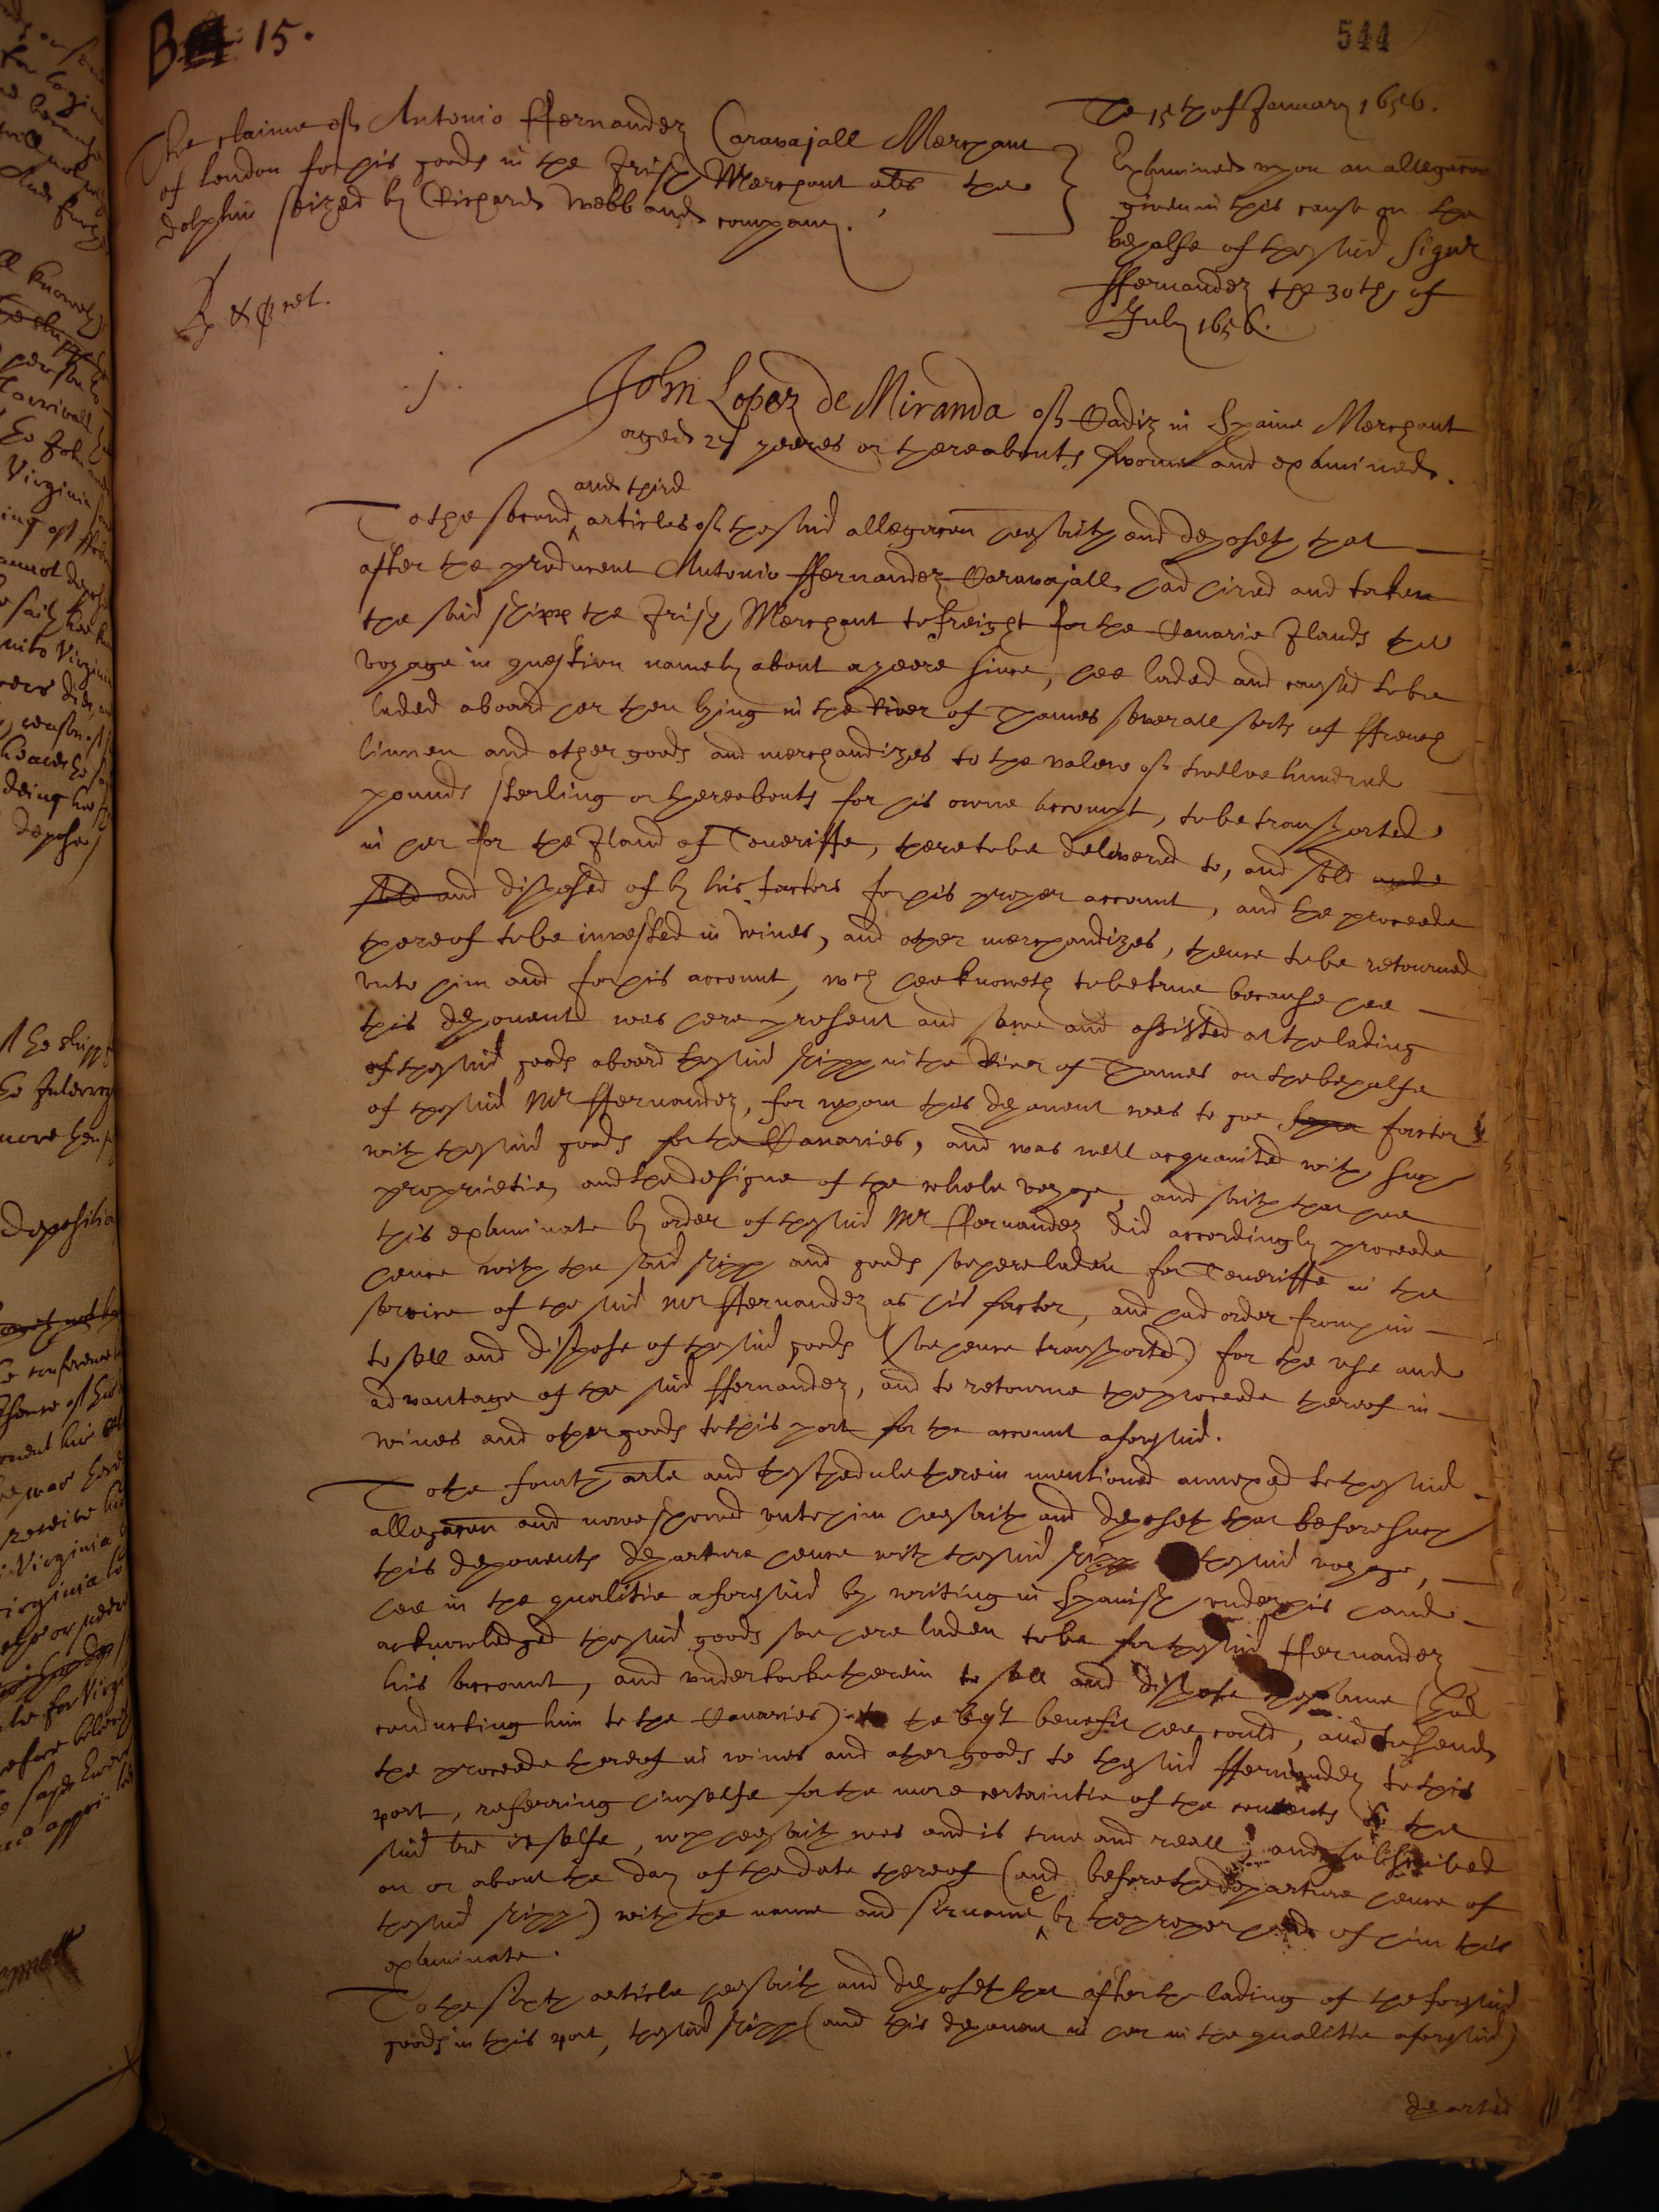 B 15.
544
The claime of Antonio Ffernandez Caravajall Merchant
of London for his goods in the Irish Merchant als the
dolphin seized by Richard Webb and company.
Rp. Ex prel.
The 15th of January 1656.
Examined upon an allegacon
given in this cause on the
behalfe of the said Signr
Ffernandez the 30th of
July 1656.
.1.
John Lopez de Miranda of Cadiz in Spaine Merchant
aged 27 yeeres or thereabouts sworne and examined.
and third
To the second articles of the said allegacon hee saith and deposeth that
after the producent Antonio Ffernandez Caravajall had hired and taken
the said shipp the Irish Merchant to freight for the Canarie Ilands the
voyage in question namely about a yeere since, hee laded and caused to be
laded aboard her then lying in the River of Thames severall sorts of Ffrench
linnen and other goods and merchandizes to the valew of twelve hundred
pounds sterling or thereabouts for his owne accompt, to be transported
in her for the Iland of Teneriffe, there to be delivered to, and sold and
sold and disposed of by his factors for his proper account, and the proceede
thereof to be invested in wines, and other merchandizes, thence to be retourned
unto him and for his account, wch hee knoweth to be true because hee
this deponent was here present and sawe and assisted at the lading
of the said goods aboard the said shipp in the River of Thames on the behalfe
of the said Mr Ffernandez, for whom this deponent was to goe factor
with the said goods for the Canaries, and was well acquainted with such
proprietie, and the designe of the whole voyage, and saith that hee
this examinate by order of the said Mr Ffernandez did accordingly proceede
hence with the said shipp and goods soe here laden for Teneriffe in the
service of the said Mr Ffernandez as his factor, and had order from him
to sell and dispose of the said goods (soe hence transported) for the use and
advantage of the said Ffernandez, and to retourne the proceede thereof in
wines and other goods to this port for the account aforesaid.
To the fourth arle and the schedule therein mentioned annexed to the said
allegacon and nowe showed unto him hee saith and deposeth that before such
this deponents departure hence with the said shipp the said voyage,
hee in the qualitie aforesaid by writing in Spanish under his hand
acknowledged the said goods soe here laden to be for the said Ffernandez
his account, and undertooke therein to sell and dispose the same (God
conducting him to the Canaries) to the best benefit hee could, and to send
the proceede thereof in wines and other goods to the said Ffernandez to this
port, referring himselfe for the more certaintie of the contents to the
said tre it selfe, wch hee saith was and is true and reall, and subscribed
on or about the day of the date thereof (and before the departure hence of
the said shipp) with the name and sirname by the proper hand of him this
examinate.
To the sixth article hee saith and deposeth that after the lading of the foresaid
goods in this port, the said shipp (and this deponent in her in the qualitie aforesaid)
departed